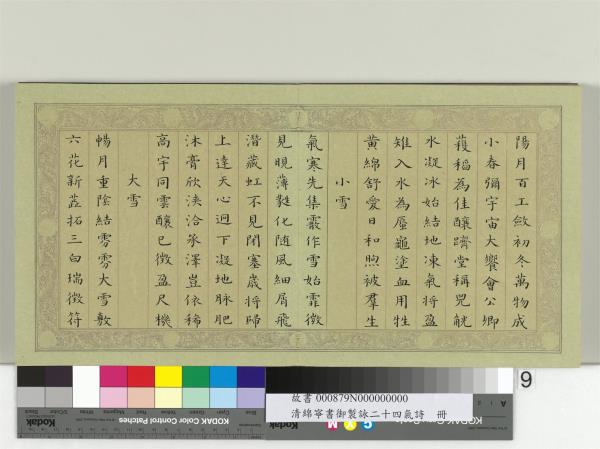 陽月百工斂初冬萬物成
小春彌宇宙大饗會公卿
穫稻為佳釀躋堂稱兕觥
水凝冰始結地凍氣將盈
雉入水為蜃龜塗血用牲
黃綿舒愛日和煦被羣生
小雪
氣寒先集霰作雪始霏微
見晛薄㲠化随風細屑飛
潛藏虹不見閉塞歲將歸
上達天心迥下凝地脉肥
沐膏欣浹洽承澤豈依稀
高宇同雲釀已徵盈尺機
大雪
暢月重陰結雰雰大雪敷
六花新蕋拓三白瑞徵符
9
故書 000879N000000000
清綿寧書御製詠二十四氣詩 冊
Kodak
KODAK Color Control Patches
Blue
Cyan
Green
Yellow
Red
Magenta
White
Black
C
Y
M
A